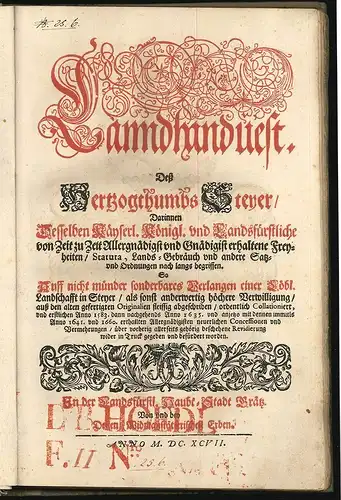 Lanndhanduest.
Deß
Hertzogthumbs Steyer/
Darinnen
Desselben Käyserl. Königl. vnd Landsfürstliche
von Zeit zu Zeit Allergnädigst vnd Gnädigist erhaltene Frey-
heiten/ Statuta, Lands-Gebräuch vnd andere Satz-
vnd Ordnungen nach langs begriffen.
So
Auff nicht münder sonderbares Verlangen einer Löbl.
Landschafft in Steyer/ als sonst anderwertig höchere Verwilligung/
auß den alten gefertigten Originalien fleissig abgeschriben/ ordentlich Collationiert,
vnd erstlichen Anno 1583. dann nachgehends Anno 1635. vnd anjetzo mit denen inmitls
Anno 1641. vnd 1660. erthailten Allergnädigisten neuerlichen Concessionen vnd
Vermehrungen/ über vorherig allerseits gehörig beschehene Revidierung
wider in Truck gegeben vnd befördert worden.
In der Landsfürstl. Haubt-Stadt Grätz.
Von vnd bey
Denen Widmanstetterischen Erben.
ANNO M. DC. XCVII.
F. II No
25.6.